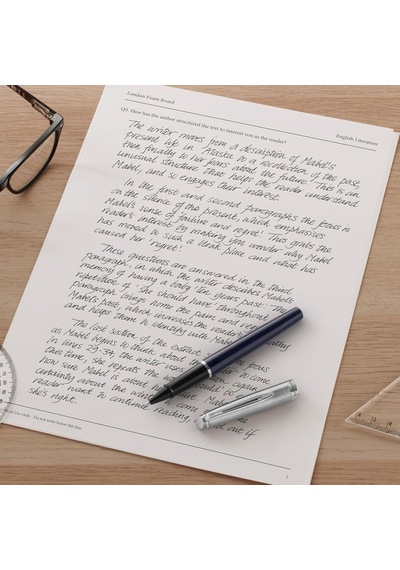 London Exam Board
English Literature
Q5. How has the author structured the text to interest you as the reader?
The writer moves from a description of Mabel's
present life in Alaska to a recollection of the past,
then finally to her fears about the future. This is an
unusual structure that helps the reader understand
Mabel, and so engages their interest.
In the first and second paragraphs the focus is
on the silence of the present, which emphasises
Mabel's sense of 'failure and regret'. This grabs the
reader's interest by making you wonder why Mabel
has moved to such a bleak place and what has
caused her 'regret'.
These questions are answered in the third
paragraph, in which the writer describes Mabel's
memory of having a baby ten years past. The
repetition of 'she should have' throughout
paragraph brings home the pain and
Mabel's past, which increases the reader's
and helps them to identify with Mabel
The last section of the extract
as Mabel begins to think about
In lines 23-34 the writer uses
this time, she repeats the
how sure Mabel is about
certainty about the
reader want to continue reading, out if
she's right.
Use Only - Do not write below this line
1